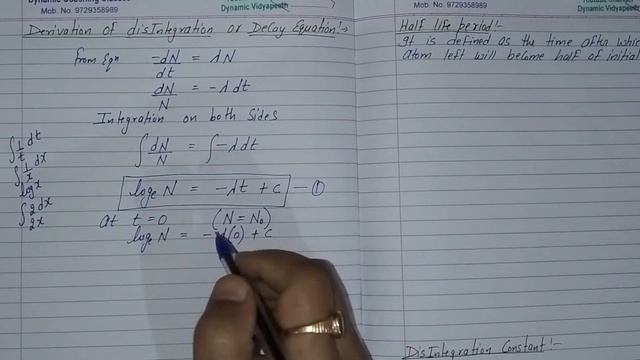 Mob. No. 9729358989
Dynamic Vidyapeeth
Derivation of disIntegration or DeCay Equation:-
from Eqn -dN/dt = λN
dN/N = -λdt
Integration on both Sides
∫dN/N = ∫-λdt
loge N = -λt + C —①
at t=0 (N=N₀)
loge N = -λ(0) + C
∫1/t dt
∫1/x dx
log x
∫2dx
2x
Mob. No. 9729358989
Dynamic Vidyapeeth
Half life period:-
It is defined as the time after which
atom left will become half of initial
DisIntegration Constant:-